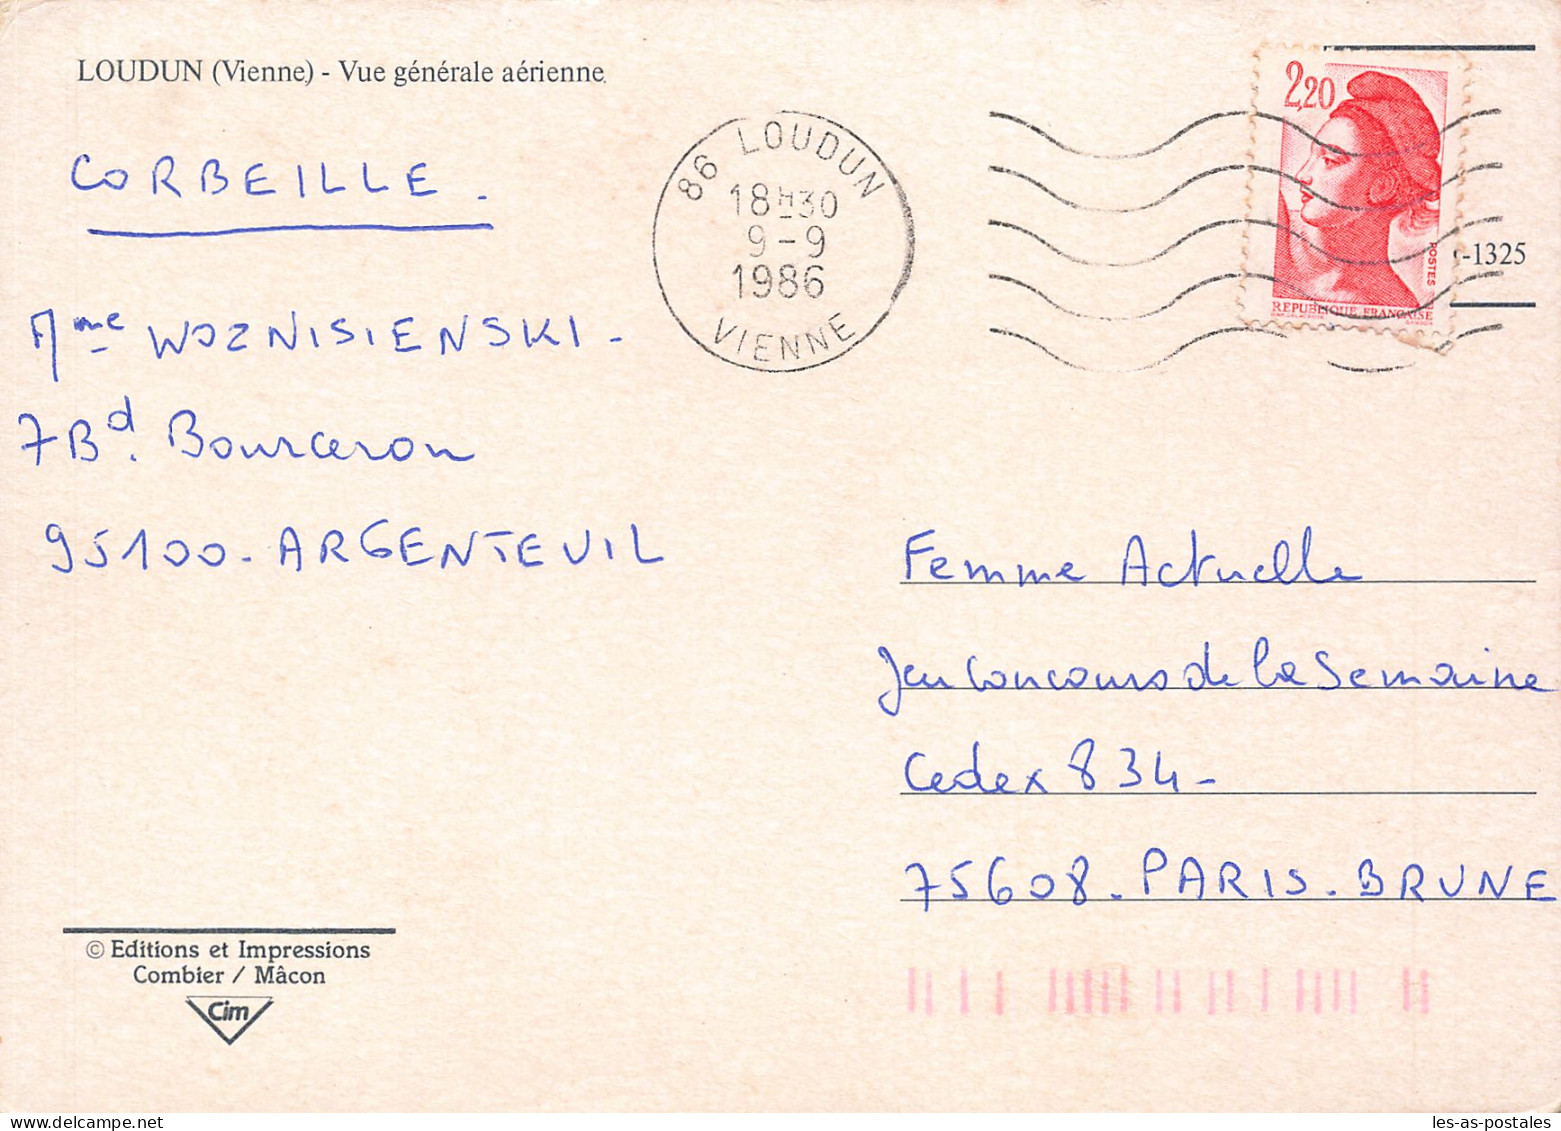 LOUDUN (Vienne) - Vue générale aérienne
CORBEILLE.
Mme WOZNISIENSKI -
7 Bd. Bourceron
95100 - ARGENTEUIL
© Editions et Impressions
Combier / Mâcon
Cim
86 LOUDUN
18H30
9-9
1986
VIENNE
2,20
POSTES
REPUBLIQUE FRANÇAISE
-1325
Femme Actuelle
Jeu Concours de la Semaine
Cedex 834 -
75608 - PARIS - BRUNE
les-as-postales